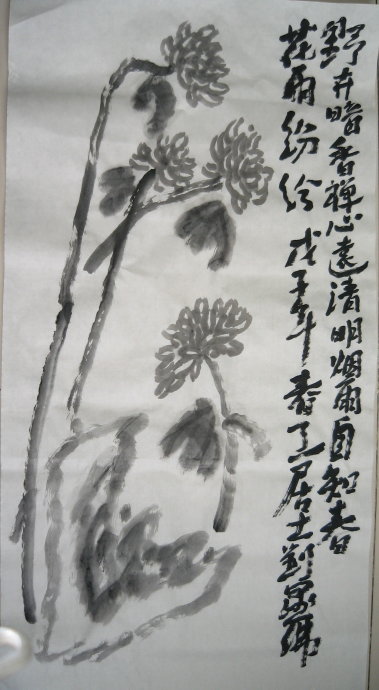 野卉暗香禅心遠清明烟雨自知春
花雨纷纷戊子年春了居士